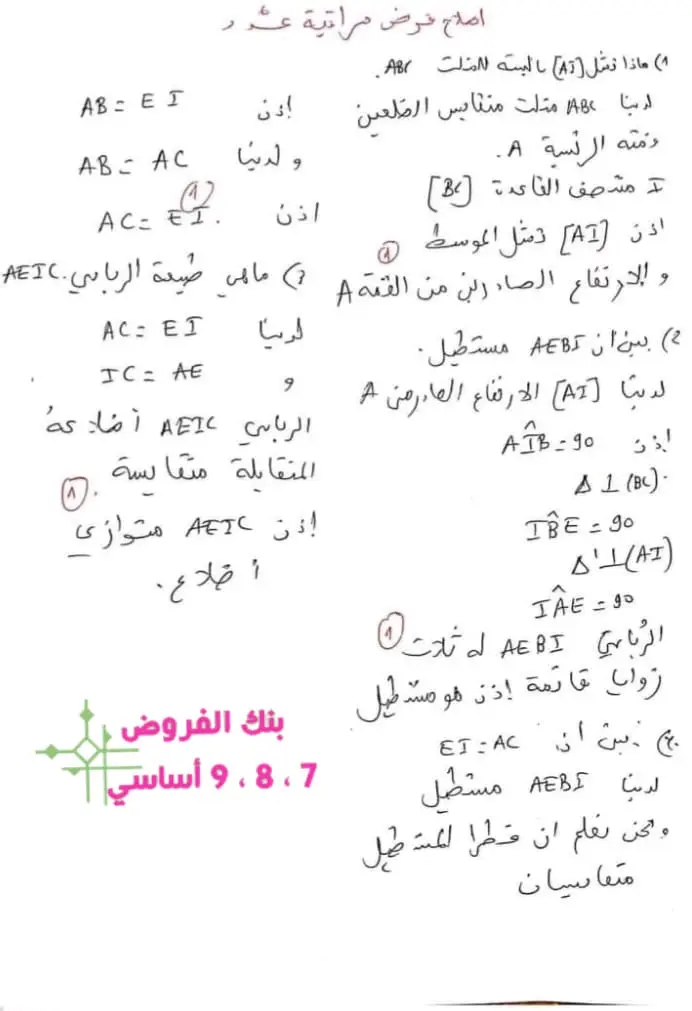 اصلاح فرض مراقبة عــ6ـدد
1) ماذا تمثل [AI] بالنسبة للمثلث ABC.
لدينا ABC مثلث متقايس الضلعين
قمته الرئيسية A.
I منتصف القاعدة [BC]
اذن [AI] تمثل الموسط
1
و الارتفاع الصادرين من القمة A
2) بين ان AEBI مستطيل.
لدينا [AI] الارتفاع الصادر من A
إذن AÎB = 90
Δ ⊥ (BC).
IB̂E = 90
Δ' ⊥ (AI)
IÂE = 90
الرباعي AEBI له ثلاث
1
زوايا قائمة إذن هو مستطيل
بين أن EI = AC
لدينا AEBI مستطيل
ونحن نعلم ان قطرا المستطيل
متقايسان
إذن AB = EI
و لدينا AB = AC
اذن AC = EI.
1
ما هي طبيعة الرباعي AEIC.
لدينا AC = EI
و IC = AE
الرباعي AEIC أضلاعه
المتقابلة متقايسة.
1
إذن AEIC متوازي
أضلاع.
بنك الفروض
7 ، 8 ، 9 أساسي